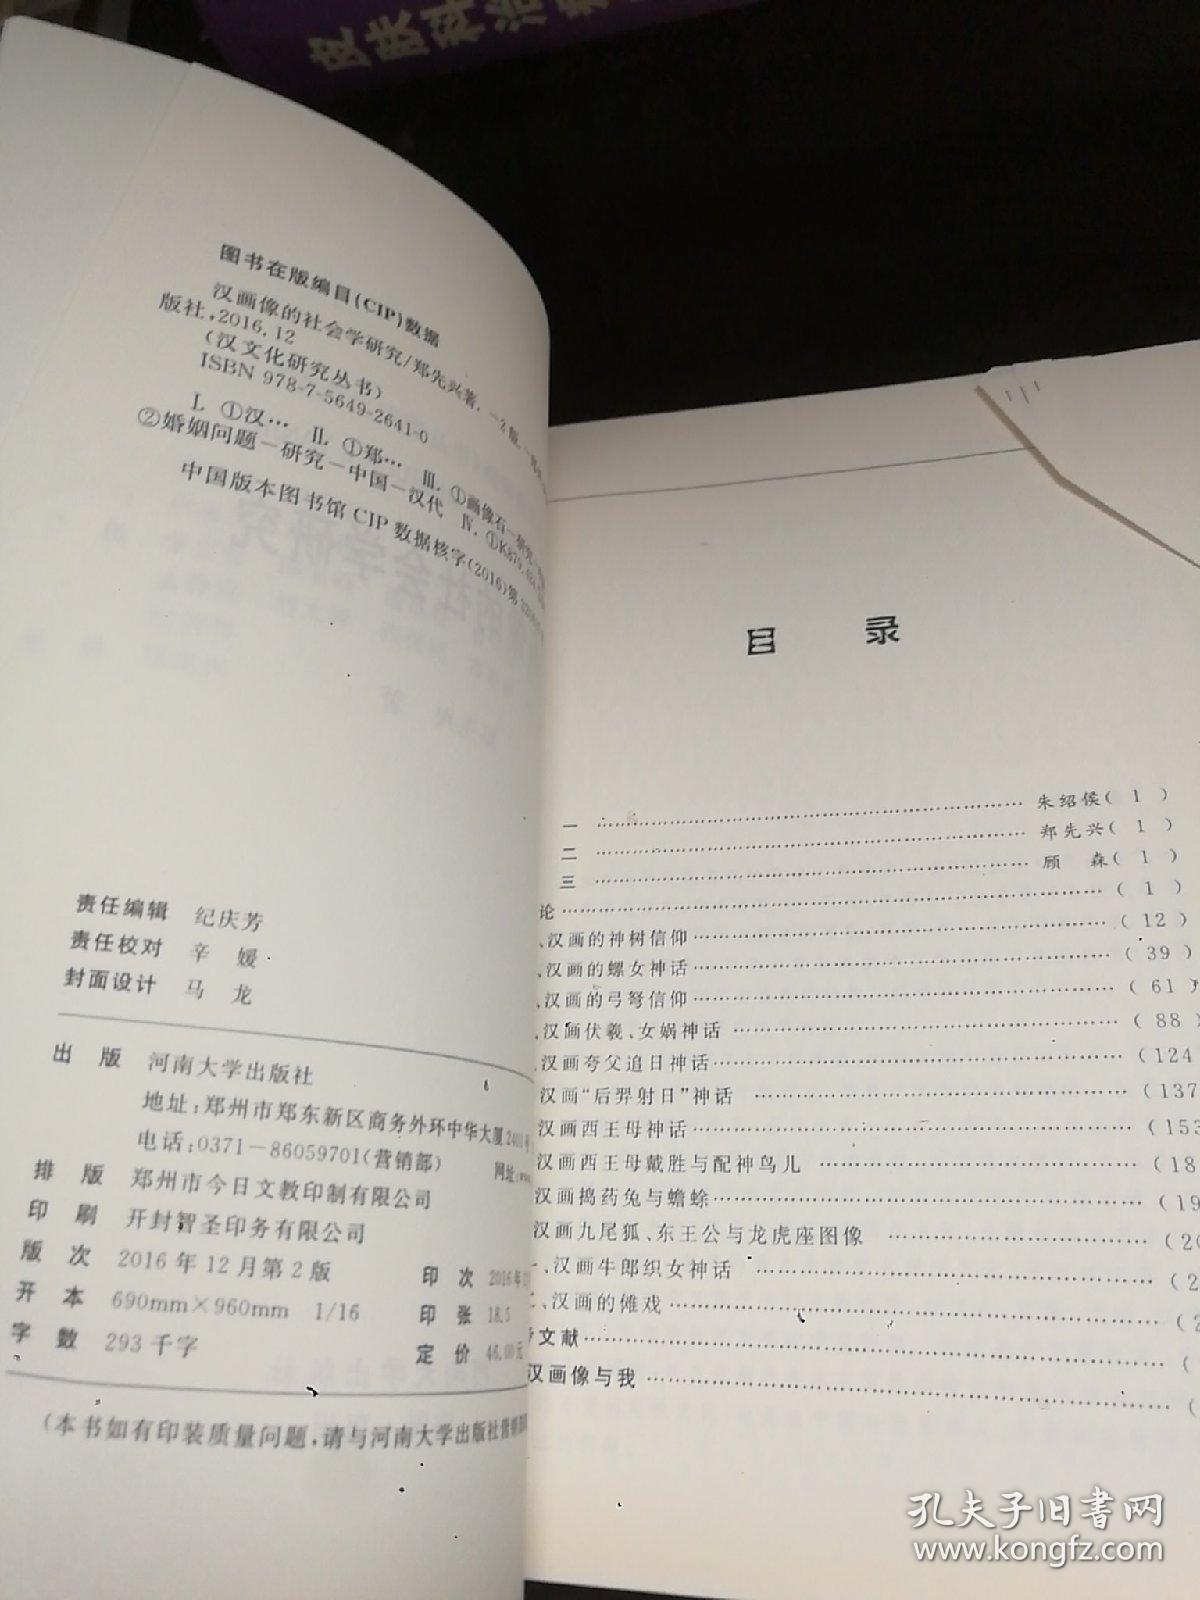 皮肤科治
图书在版编目(CIP)数据
汉画像的社会学研究/郑先兴著.—2版.
版社,2016.12
(汉文化研究丛书)
ISBN 978-7-5649-2641-0
Ⅰ.①汉… Ⅱ.①郑… Ⅲ.①画像石—研究
②婚姻问题—研究—中国—汉代 Ⅳ.①K879.
中国版本图书馆CIP数据核字(2016)第
责任编辑 纪庆芳
责任校对 辛 媛
封面设计 马 龙
出 版 河南大学出版社
地址:郑州市郑东新区商务外环中华大厦2401号
电话:0371-86059701(营销部) 网址:
排 版 郑州市今日文教印制有限公司
印 刷 开封智圣印务有限公司
版 次 2016年12月第2版 印 次 2016年
开 本 690mm×960mm 1/16 印 张 18.5
字 数 293千字 定 价 46.00元
(本书如有印装质量问题,请与河南大学出版社营销部
目 录
一 …… 朱绍侯( 1 )
二 …… 郑先兴( 1 )
三 …… 顾 森( 1 )
论 …… ( 1 )
、汉画的神树信仰 …… ( 12 )
、汉画的螺女神话 …… ( 39 )
、汉画的弓弩信仰 …… ( 61 )
、汉画伏羲、女娲神话 …… ( 88 )
、汉画夸父追日神话 …… (124
汉画“后羿射日”神话 …… (137
汉画西王母神话 …… (153
汉画西王母戴胜与配神鸟儿 …… (18
汉画捣药兔与蟾蜍 …… (19
汉画九尾狐、东王公与龙虎座图像 …… (20
一、汉画牛郎织女神话 …… (2
二、汉画的傩戏 …… (2
考文献 …… (
汉画像与我 …… (
孔夫子旧书网
www.kongfz.com